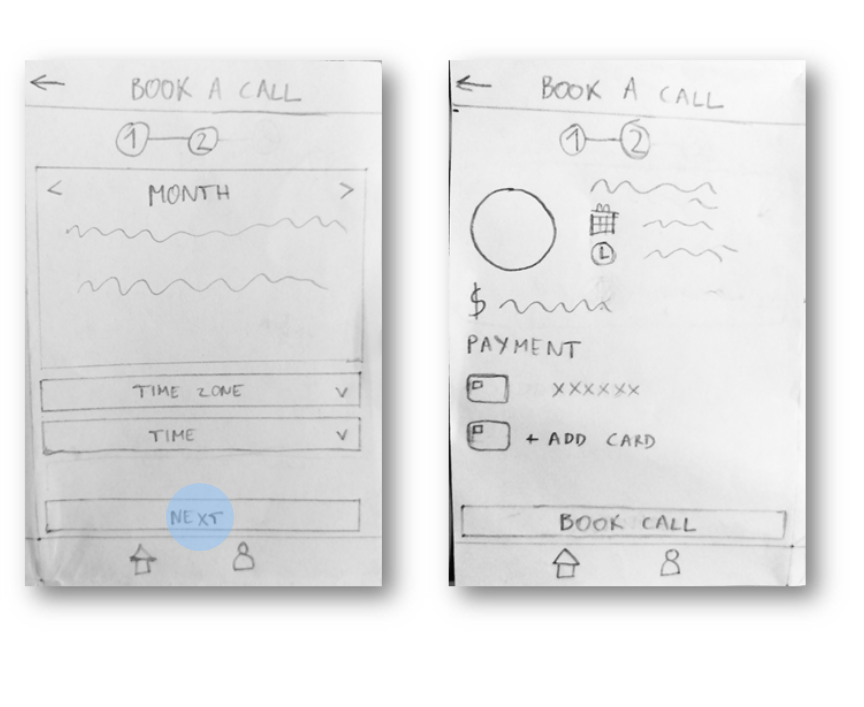 BOOK A CALL
1 2
< MONTH >
TIME ZONE
TIME
NEXT
BOOK A CALL
1 2
$
PAYMENT
XXXXXX
+ ADD CARD
BOOK CALL